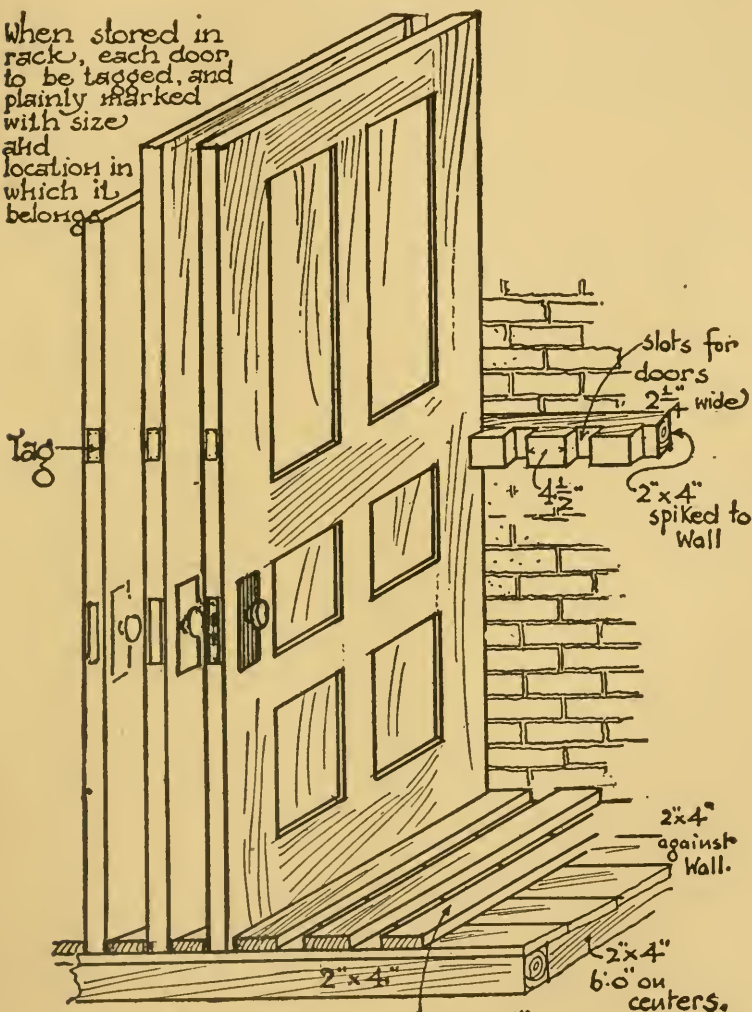 When stored in
rack, each door
to be tagged, and
plainly marked
with size
and
location in
which it
belongs
slots for
doors
2 1/4" wide
Tag
4 1/2"
2"x4"
spiked to
Wall
2"x4"
against
Wall.
2"x4"
6'0" on
centers.
2"x4"